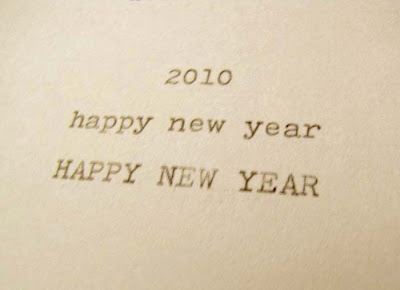 2010
happy new year
HAPPY NEW YEAR